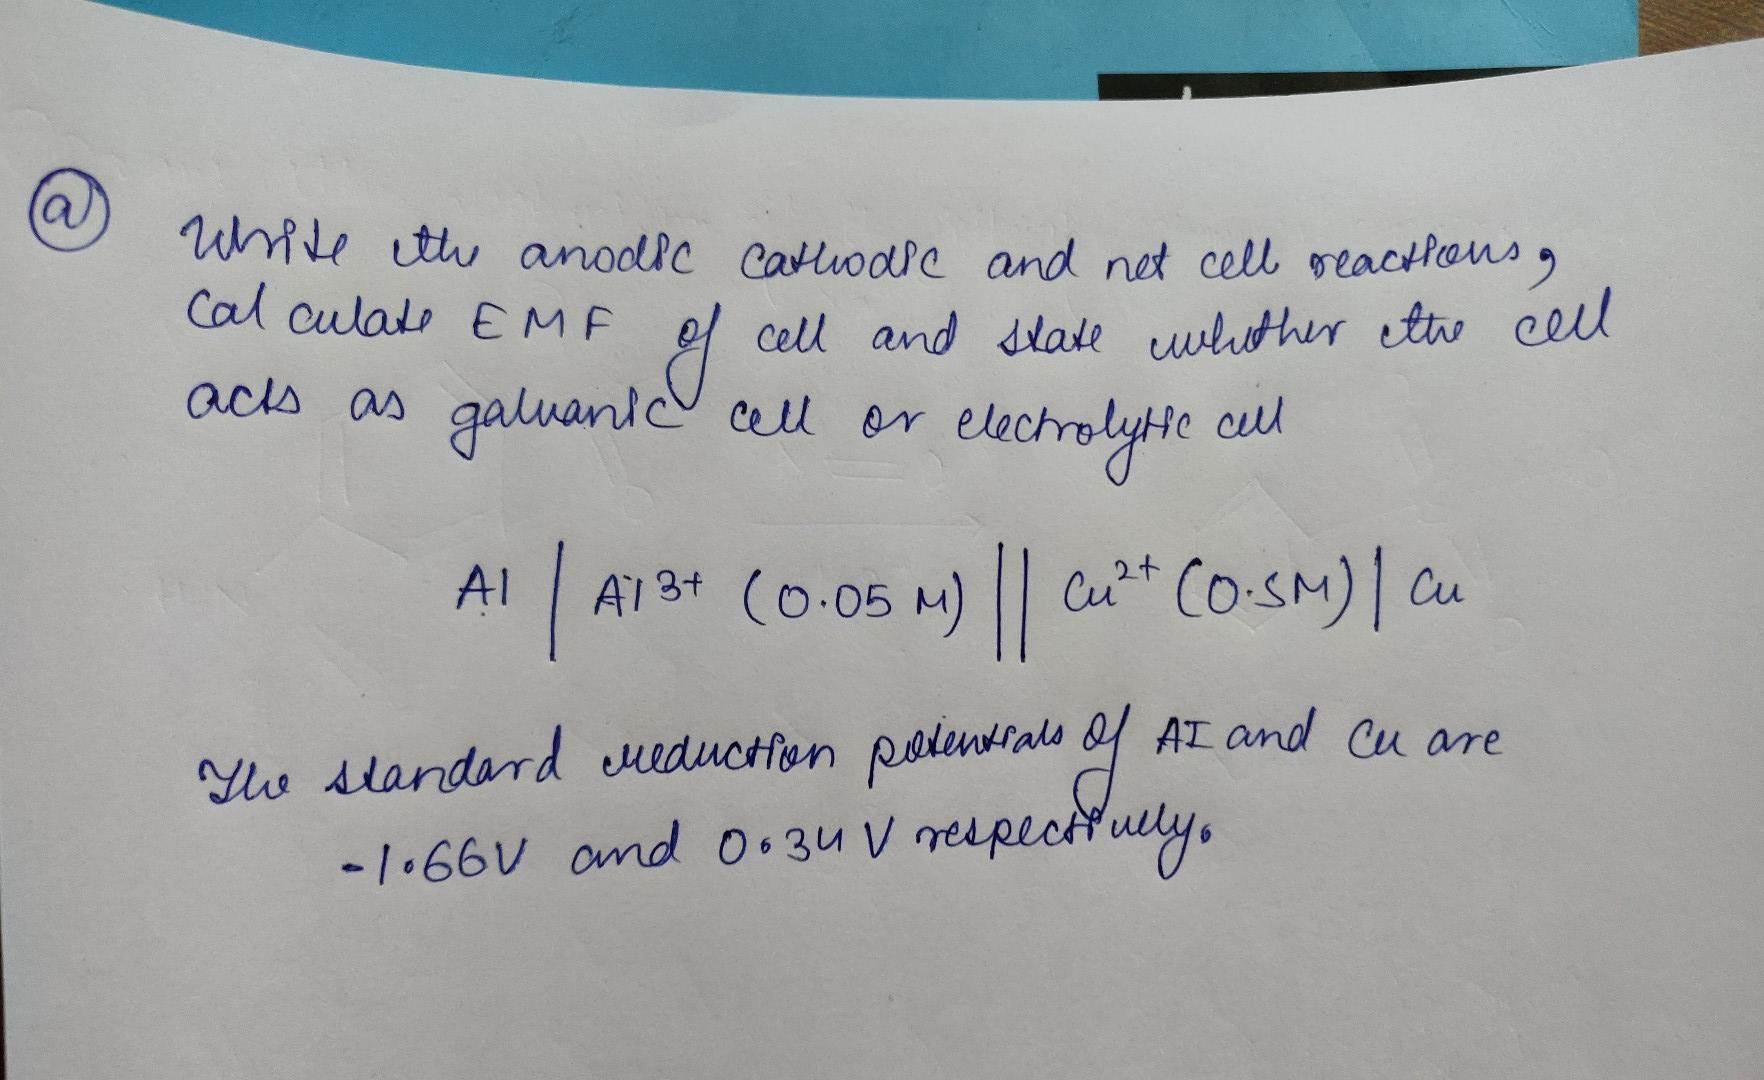 a
Write the anodic cathodic and net cell reactions,
Calculate EMF of cell and state whether the cell
acts as galvanic cell or electrolytic cell
Al | Al3+ (0.05 M) || Cu²⁺ (0.5M) | Cu
The standard reduction potentials of AI and Cu are
-1.66V and 0.34 V respectively.